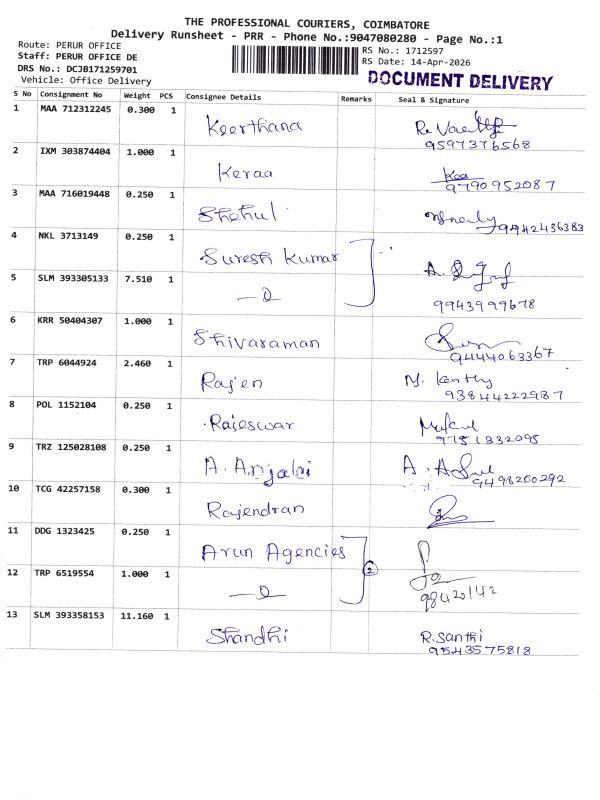 THE PROFESSIONAL COURIERS, COIMBATORE
Delivery Runsheet - PRR - Phone No.:9047080280 - Page No.:1
Route: PERUR OFFICE
Staff: PERUR OFFICE DE
DRS No.: DCJB171259701
Vehicle: Office Delivery
RS No.: 1712597
RS Date: 14-Apr-2026
DOCUMENT DELIVERY
S No Consignment No Weight PCS Consignee Details Remarks Seal & Signature
1 MAA 712312245 0.300 1 Keerthana
9597376568
2 IXM 303874404 1.000 1 Keraa
9790952087
3 MAA 716019448 0.250 1 Shehul 9942436383
4 NKL 3713149 0.250 1 Suresh Kumar
5 SLM 393305133 7.510 1
9943999678
6 KRR 50404307 1.000 1 Shivaraman
9444063367
7 TRP 6044924 2.460 1 Rajen
93844222987
8 POL 1152104 0.250 1 Rajeswar
9751332095
9 TRZ 125028108 0.250 1 A. Anjalai
9498260292
10 TCG 42257158 0.300 1 Rajendran
11 DDG 1323425 0.250 1 Arun Agencies
2
12 TRP 6519554 1.000 1
13 SLM 393358153 11.160 1 Shandhi R. Santhi
9543575818